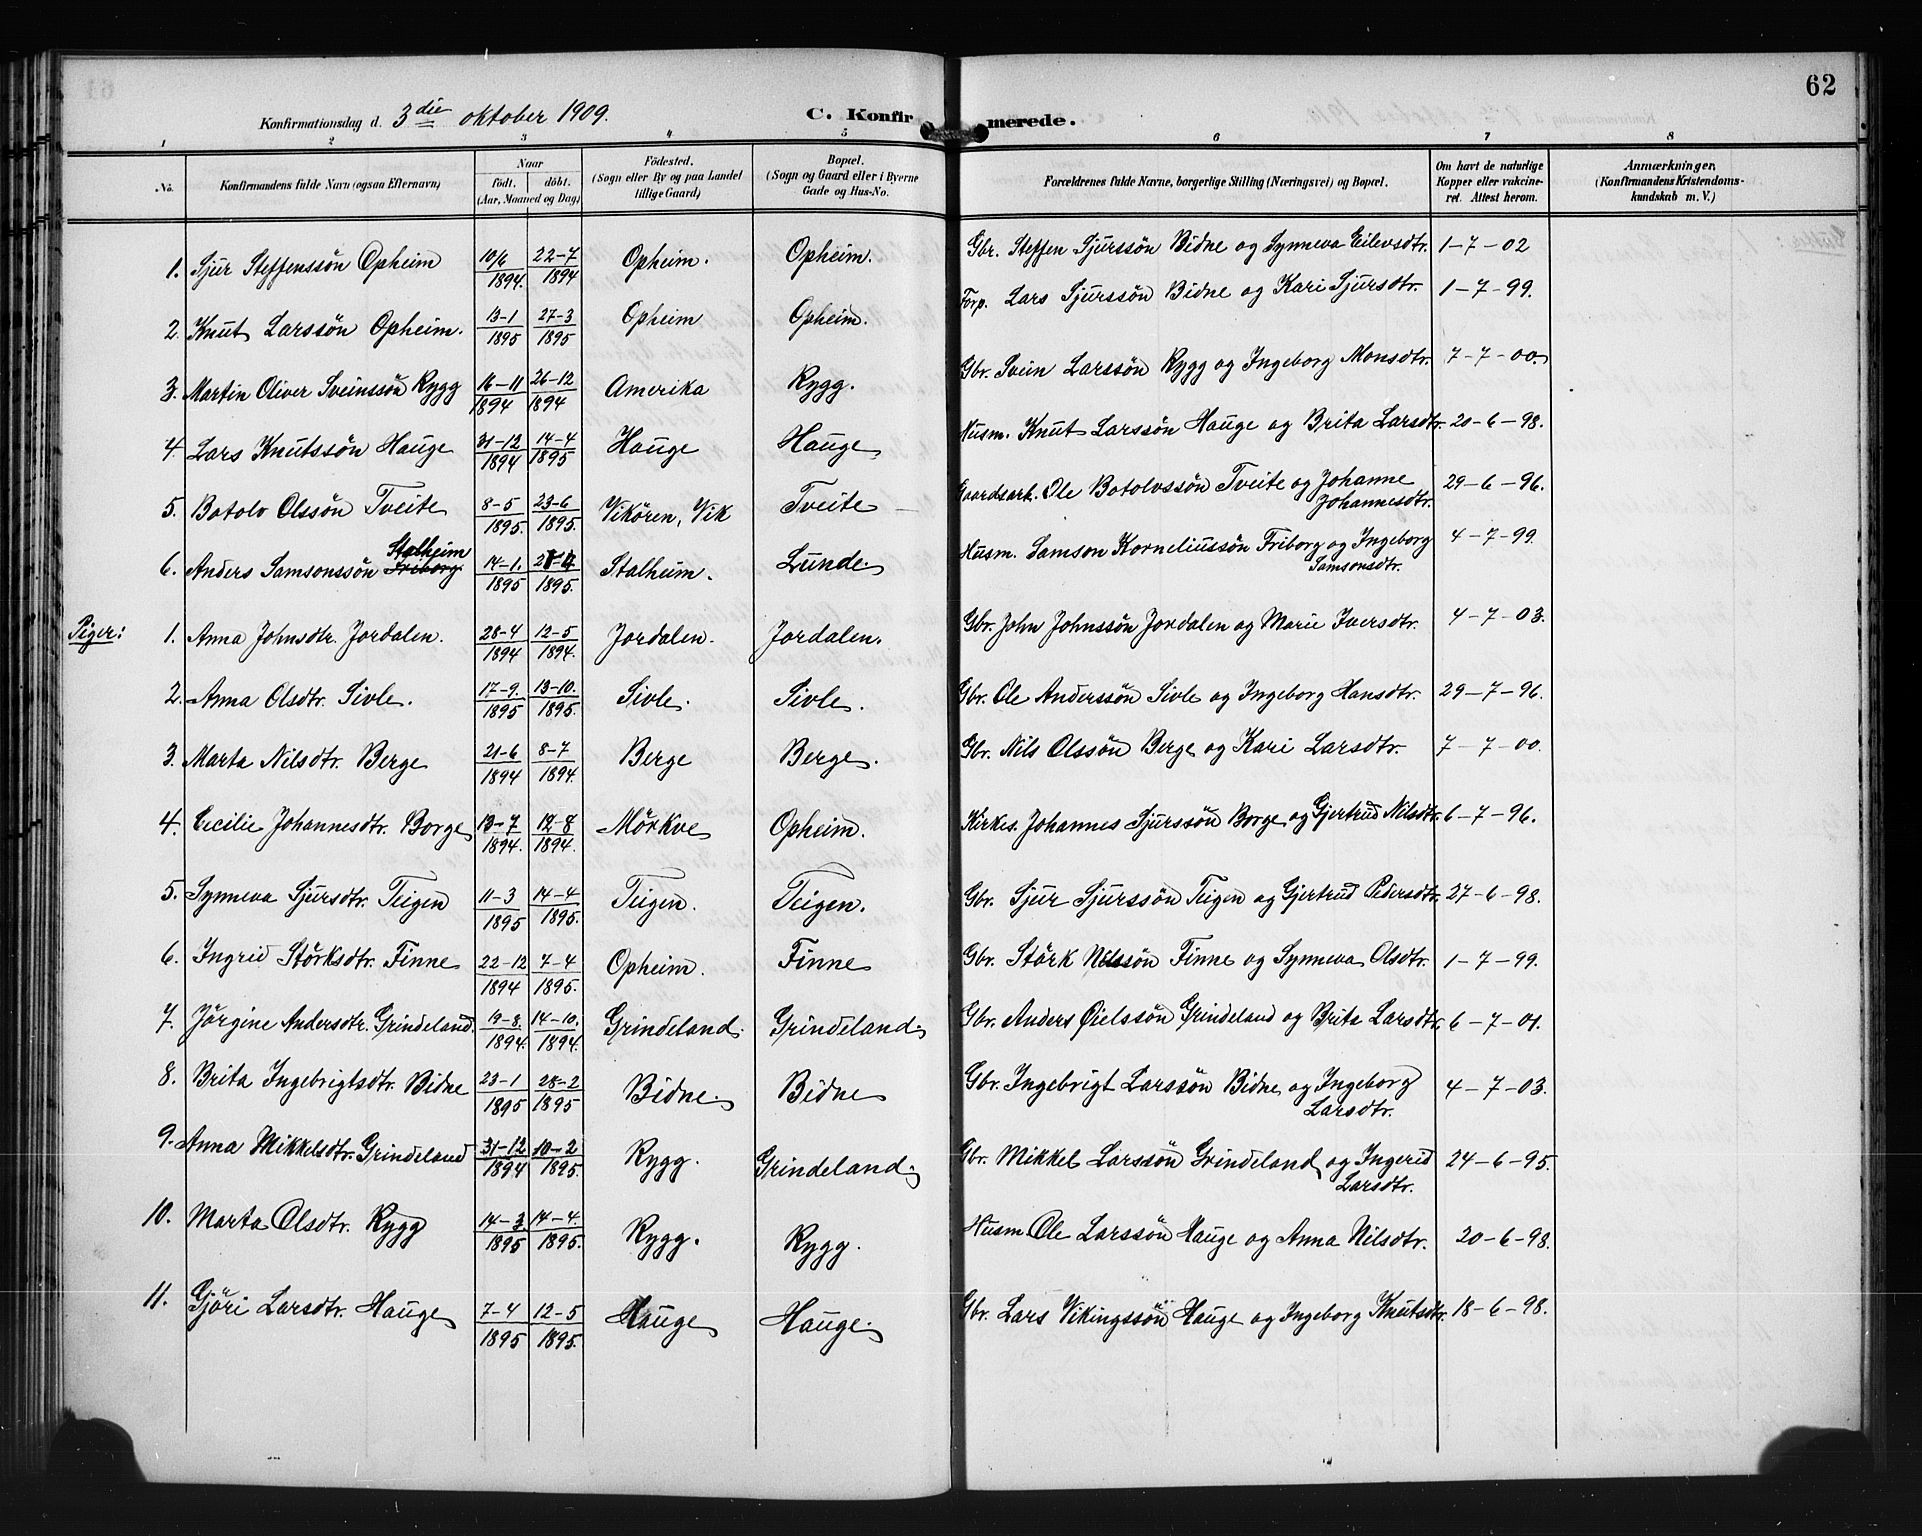 62
Konfirmationsdag d. 3die oktober 1909. C. Konfirmerede.
1 2 3 4 5 6 7 8
No. Konfirmandens fulde Navn (ogsaa Efternavn) Naar født. døbt. (Aar, Maaned og Dag) Fødested. (Sogn eller By og paa Landet tillige Gaard) Bopæl. (Sogn og Gaard eller i Byerne Gade og Hus-No. Forældrenes fulde Navne, borgerlige Stilling (Næringsvei) og Bopæl. Om havt de naturlige Kopper eller vakcineret. Attest herom. Anmærkninger, (Konfirmandens Kristendomskundskab m. V.)
1. Sjur Steffenssön Opheim 10/6 1894. 22-7 1894 Opheim. Opheim. Gbr. Steffen Sjurssön Bidne og Synneva Eilevsdtr. 1-7-02
2. Knut Larssön Opheim. 13-1 1895 27-3 1895 Opheim Opheim. Forp. Lars Sjurssön Bidne og Kari Sjursdtr. 1-7-99.
3. Martin Oliver Sveinssön Rygg 16-11 1894 26-12 1894 Amerika Rygg. Gbr. Svein Larssön Rygg og Ingeborg Monsdtr. 7-7-00.
4. Lars Knutssön Hauge 31-12 1894 14-4 1895 Hauge Hauge Husm. Knut Larssön Hauge og Brita Larsdtr. 20-6-98.
5. Botolv Olssön Tveite 8-5 1895. 23-6 1895. Vikören, Vik Tveite Gaardsarb. Ole Botolvssön Tveite og Johanne Johannesdtr. 29-6-96.
6. Anders Samsonssön Friborg Stalheim 14-1. 1895 1895. Stalheim. Lunde. Husm. Samson Korneliussön Friborg og Ingeborg Samsonsdtr. 4-7-99.
Piger: 1. Anna Johnsdtr. Jordalen. 28-4 1894 12-5 1894. Jordalen. Jordalen. Gbr. John Johnssön Jordalen og Marie Iversdtr. 4-7-03.
2. Anna Olsdtr. Sivle. 17-9. 1895 13-10. 1895. Sivle. Sivle. Gbr. Ole Anderssön Sivle og Ingeborg Hansdtr. 29-7-96.
3. Marta Nilsdtr. Berge 21-6 1894 8-7 1894. Berge Berge. Gbr. Nils Olssön Berge og Kari Larsdtr. 7-7-00.
4. Cecilie Johannesdtr. Borge 13-7 1894. 12-8 1894. Mörkve Opheim. Kirkes. Johannes Sjurssön Borge og Gjertrud Nilsdtr. 6-7-96.
5. Synneva Sjursdtr. Teigen 11-3 1895 14-4 1895. Teigen. Teigen. Gbr. Sjur Sjurssön Teigen og Gjertrud Pedersdtr. 27-6-98.
6. Ingrid Störksdtr. Finne 22-12 1894 7-4 1895. Opheim. Finne Gbr. Störk Nilssön Finne og Synneva Olsdtr. 1-7-99.
7. Jörgine Andersdtr. Grindeland. 19-8. 1894. 14-10. 1894. Grindeland. Grindeland. Gbr. Anders Øielssön Grindeland og Brita Larsdtr. 6-7-01.
8. Brita Ingebrigtsdtr. Bidne 23-1 1895 28-2 1895 Bidne. Bidne Gbr. Ingebrigt Larssön Bidne og Ingeborg Larsdtr. 4-7-03.
9. Anna Mikkelsdtr. Grindeland 31-12 1894 10-2 1895. Rygg. Grindeland. Gbr. Mikkel Larssön Grindeland og Ingerid Larsdtr. 24-6-95.
10. Marta Olsdtr. Rygg 14-3. 1895 14-4. 1895. Rygg. Rygg. Husm. Ole Larssön Hauge og Anna Nilsdtr. 20-6-98.
11. Gjöri Larsdtr. Hauge 7-4 1895 12-5 1895. Hauge Hauge. Gbr. Lars Vikingssön Hauge og Ingeborg Knutsdtr. 18-6-98.